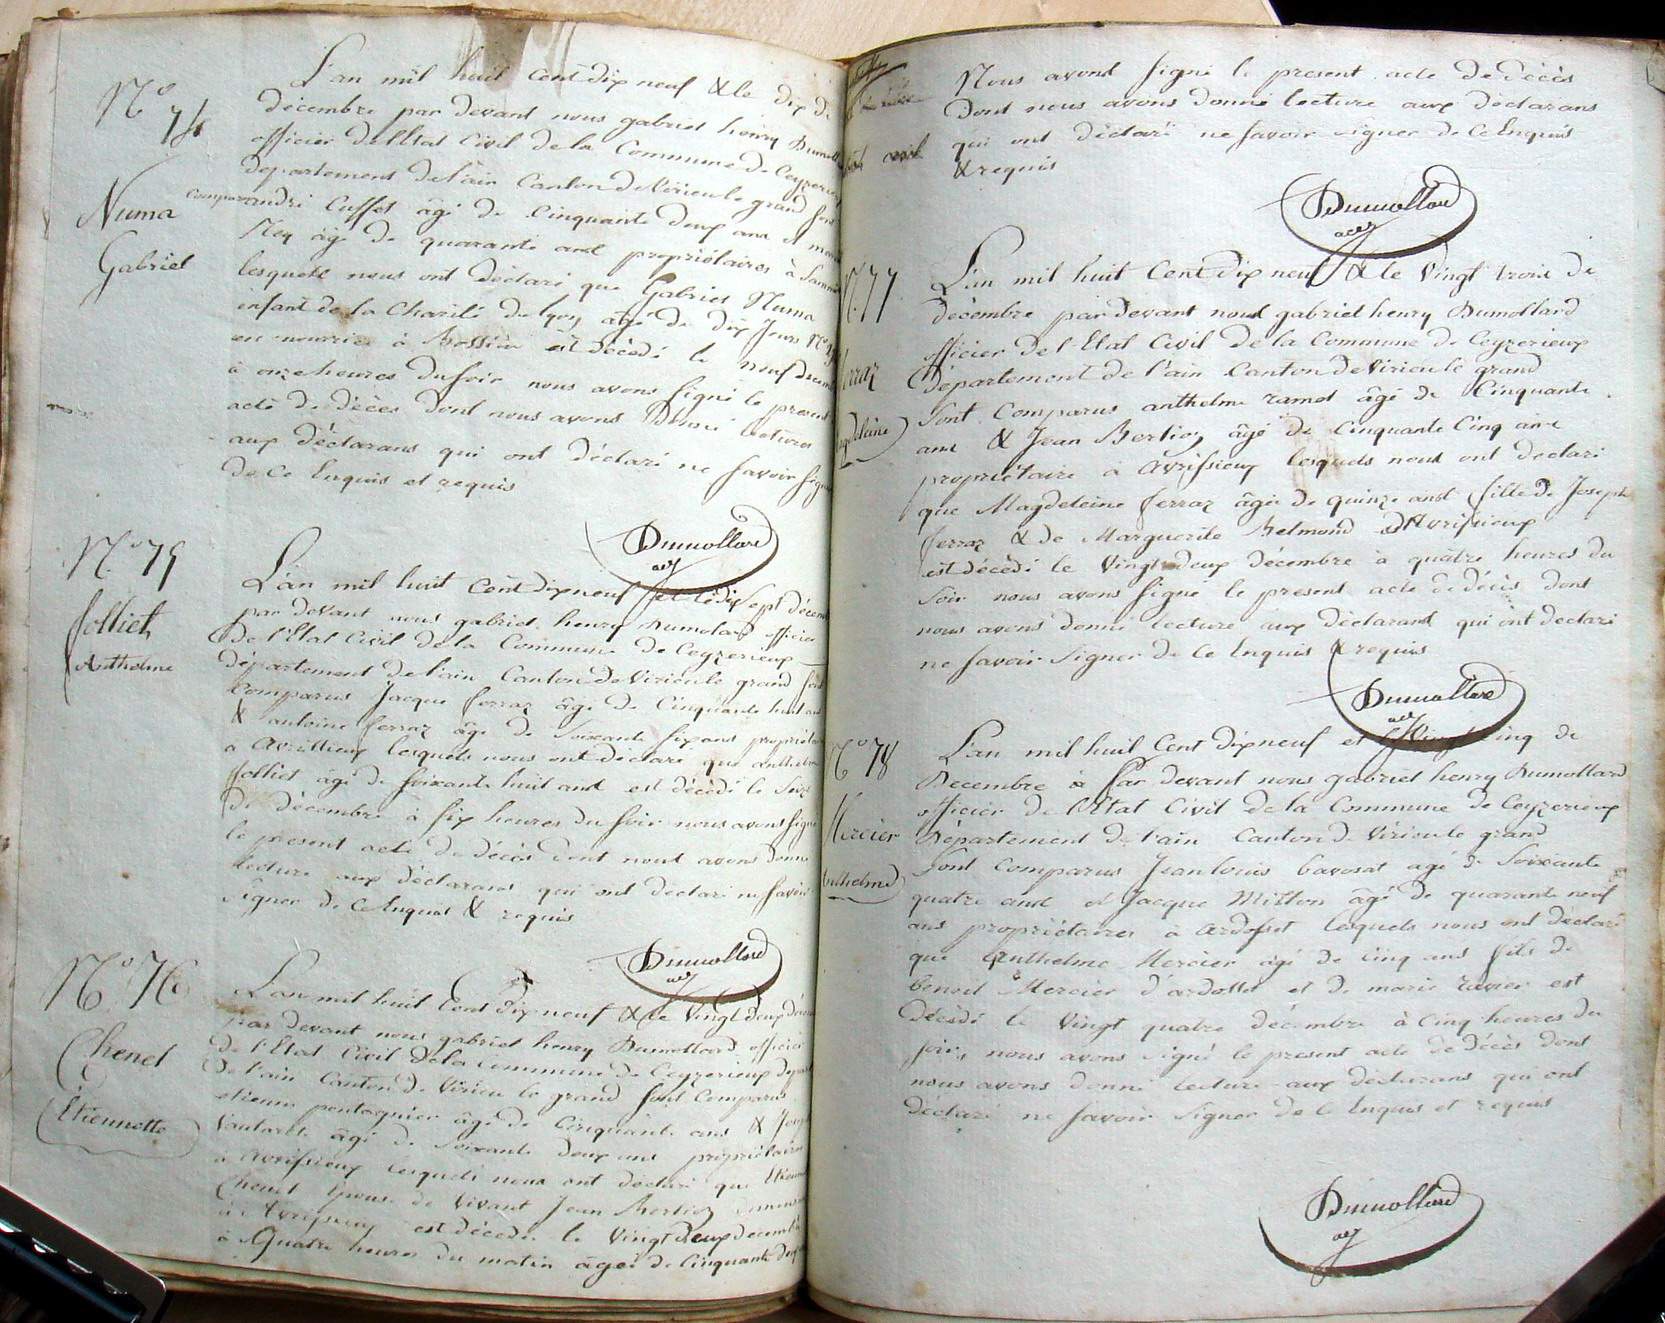 N° 74
Numa
Gabriel
L'an mil huit cent dix neuf & le dix de
décembre par devant nous gabriel henry
officier de l'Etat Civil de la Commune de
département de l'ain Canton de Virieu le grand sont
comparu andré Cusset âgé de Cinquante deux ans et
Ney âgé de quarante ans propriétaires à
lesquels nous ont déclaré que Gabriel Numa
enfant de la Charité de âgé de dix Jours
en nourrice à est décédé le neuf
à onze heures du soir nous avons signé le présent
acte de décès dont nous avons Donné lecture
aux déclarans qui ont déclaré ne savoir
de ce Enquis et requis
Dumollard
aej
N° 75
Jolliet
Anthelme
L'an mil huit cent dix neuf et le dix sept
par devant nous gabriel henry Dumolard officier
de l'Etat Civil de la Commune de Ceyzerieux
département de l'ain Canton de Virieu le grand sont
Comparus Jacque ferraz âgé de Cinquante huit ans
& antoine ferraz âgé de Soixante six ans
à Avrillieux lesquels nous ont déclaré que
Jolliet âgé de soixante huit ans est décédé le Seize
de décembre à six heures du soir nous avons signé
le présent acte de décès dont nous avons donné
lecture aux déclarans qui ont déclaré ne savoir
signer de ce Enquis & requis
Dumollard
aej
N° 76
Chenel
Etiennette
L'an mil huit Cent dix neuf & le Vingt deux
par devant nous gabriel henry Dumollard officier
de l'Etat Civil de la Commune de Ceyzerieux
de l'ain Canton de Virieu le grand sont Comparus
etienne pentagnier âgé de Cinquante ans &
âgé de Soixante deux ans propriétaires
à Avrissieux lesquels nous ont déclaré que
Chenel Epouse de Vivant Jean Berlioz
à Avrissieux est décédée le Vingt Deux
à Quatre heures du matin âgée de Cinquante
Nous avons signé le présent acte de décès
Dont nous avons donné lecture aux déclarans
qui ont déclaré ne savoir signer de Ce Enquis
& requis
Dumollard
aej
N° 77
L'an mil huit Cent dix neuf & le Vingt trois de
décembre par devant nous gabriel henry Dumollard
officier de l'Etat Civil de la Commune de Ceyzerieux
département de l'ain Canton de Virieu le grand
Sont Comparus anthelme ramel âgé de Cinquante
ans & Jean Berlioz âgé de Cinquante Cinq ans
propriétaire à Avrissieux lesquels nous ont déclaré
que Magdeleine ferraz âgée de quinze ans fille de Joseph
ferraz & de Marguerite Belmond d'Avrissieux
est décédé le Vingt deux décembre à quatre heures du
soir nous avons signé le présent acte de décès dont
nous avons donné lecture aux déclarans qui ont déclaré
ne savoir Signer de Ce Enquis & requis
Dumollard
aej
N° 78
Mercier
Anthelme
L'an mil huit Cent dix neuf et le Vingt Cinq de
Decembre à par devant nous gabriel henry Dumollard
officier de l'Etat Civil de la Commune de Ceyzerieux
Département de l'ain Canton de Virieu le grand
Sont Comparus Jean louis bavosat agé de Soixante
quatre ans et Jacque Mitton âgé de quarante neuf
ans propriétaires à ardosset lesquels nous ont déclaré
que Anthelme Mercier agé de Cinq ans fils de
benoit Mercier d'ardosset et de marie ravier est
Décédé le Vingt quatre décembre à Cinq heures du
soir, nous avons Signé le présent acte de décès dont
nous avons donné lecture aux déclarans qui ont
déclaré ne savoir Signer de Ce Enquis et requis
Dumollard
aej